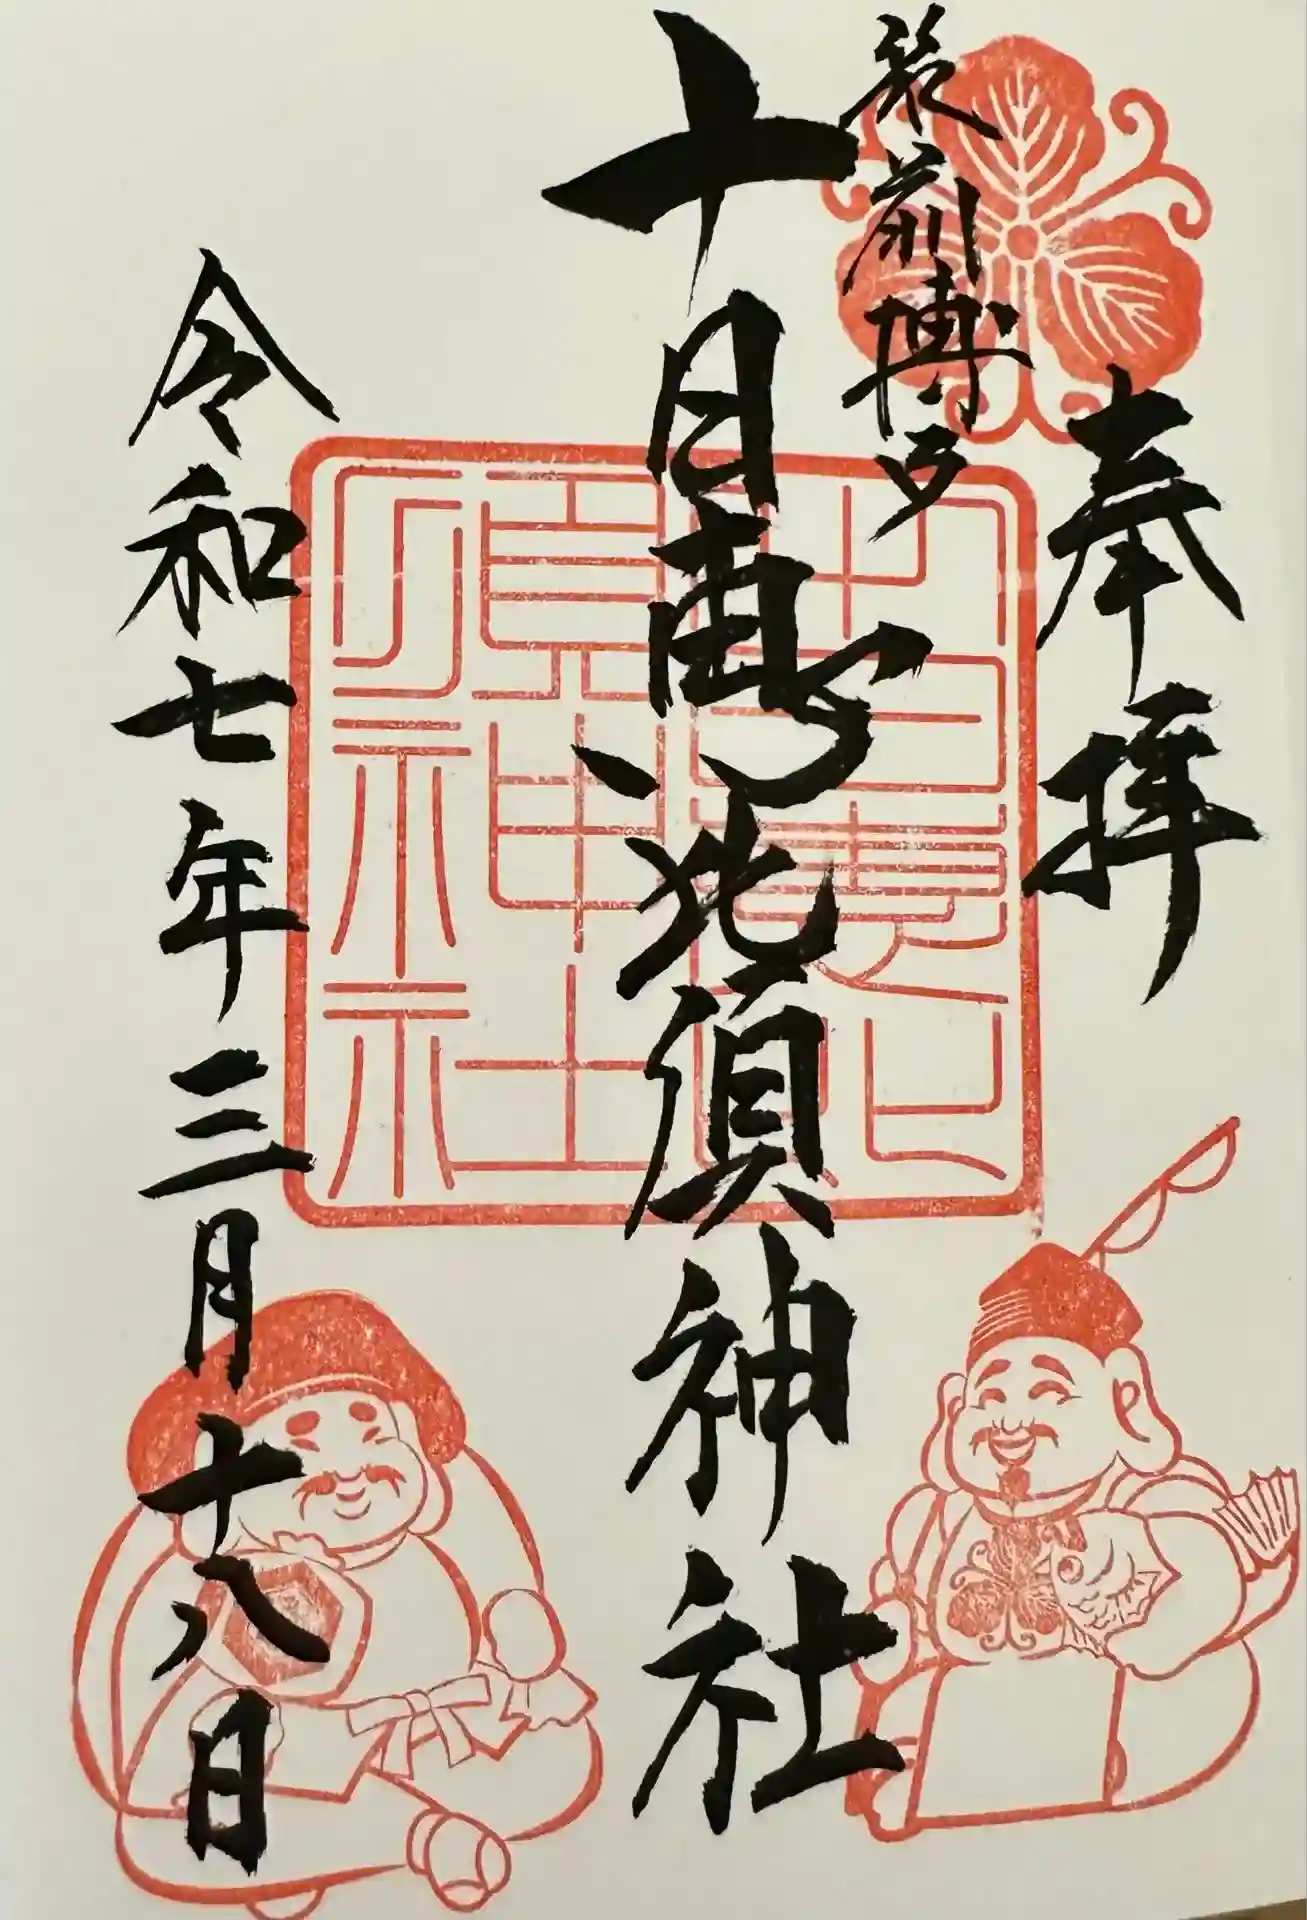 奉拝
筑前博多
十日恵比須神社
令和七年三月十八日
十日恵比
須神社